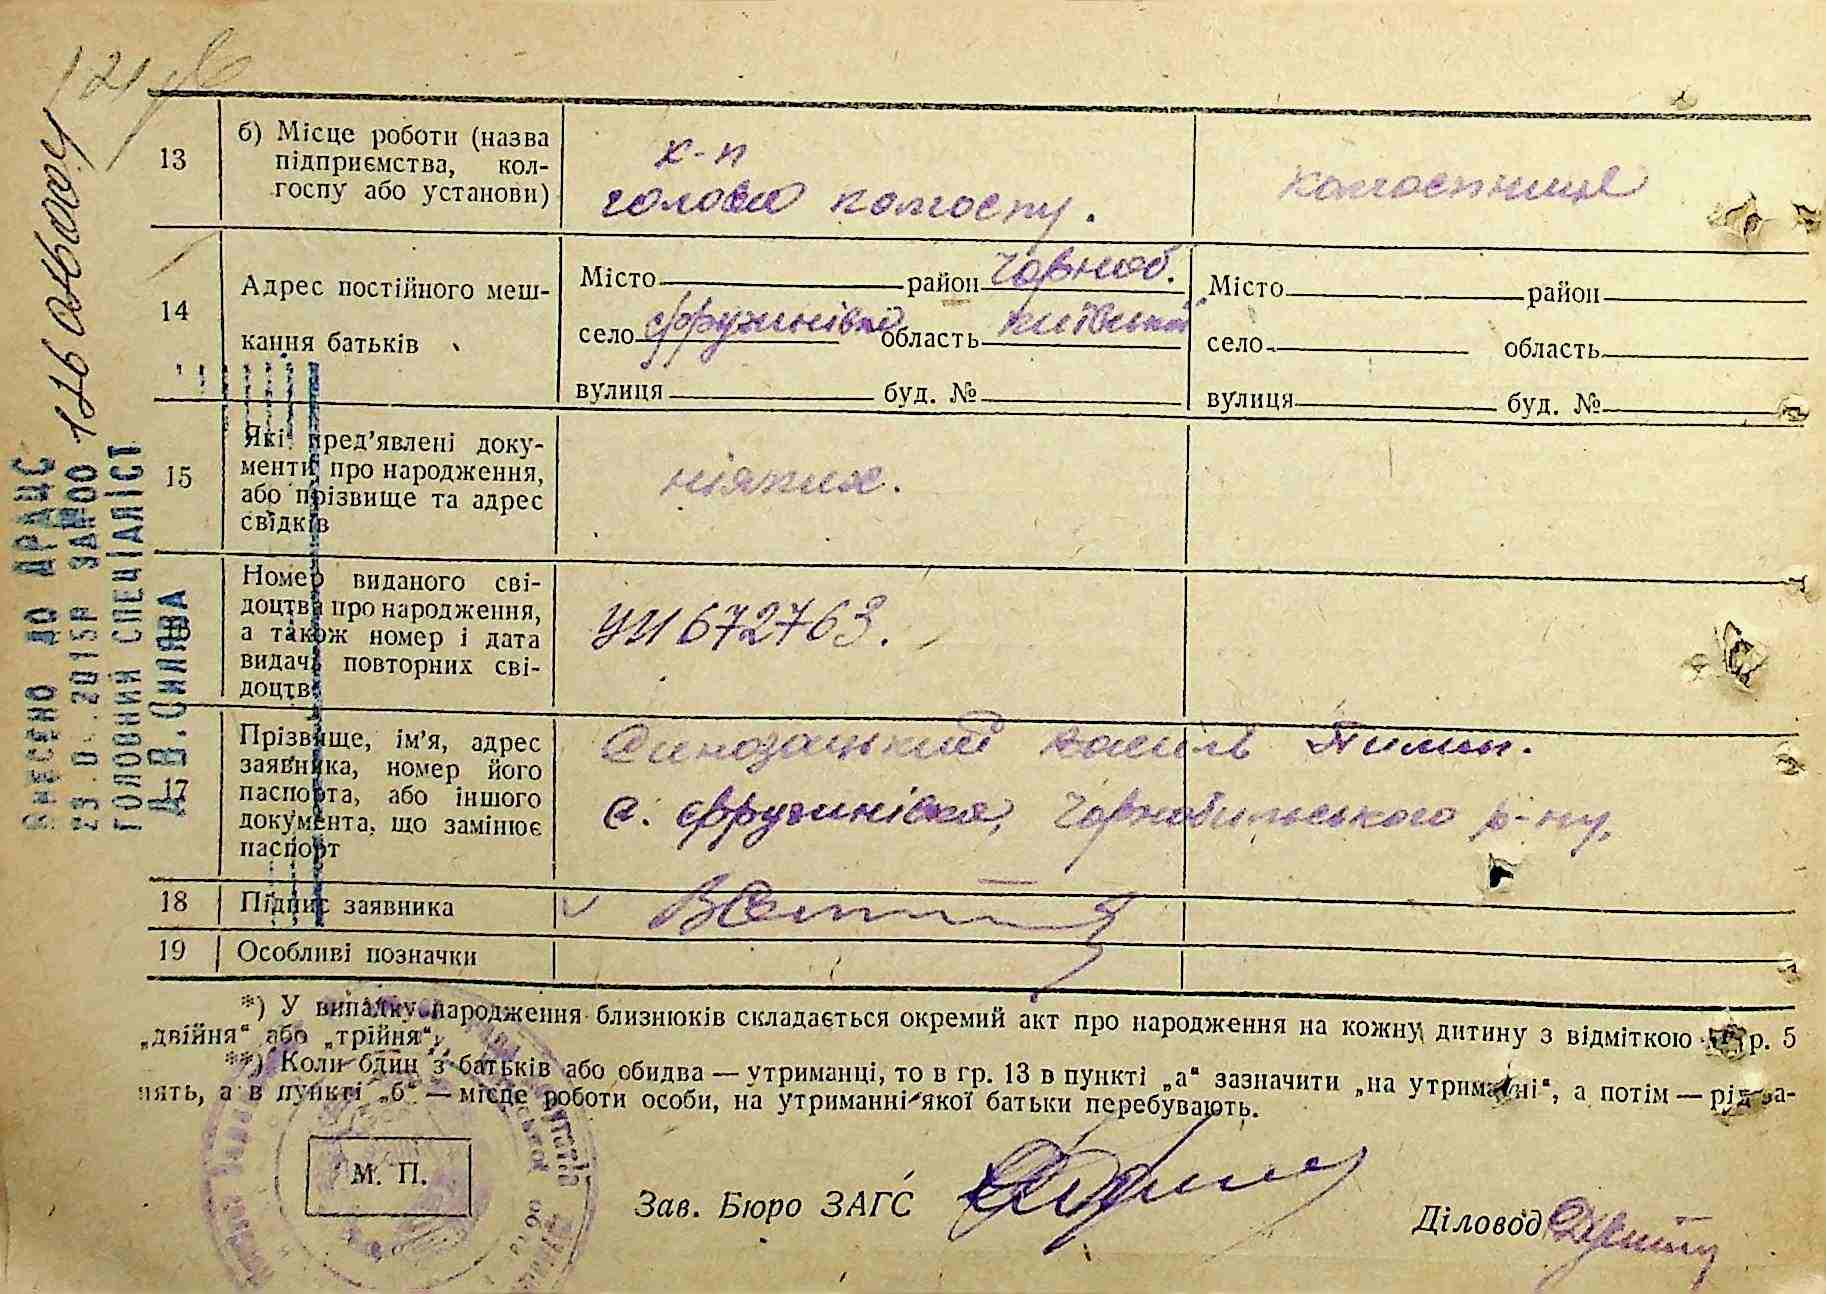 121
13
б) Місце роботи (назва
підприємства, кол-
госпу або установи)
к-п
голова колгоспу.
колгоспниця
14
Адрес постійного меш-
кання батьків
Місто район Чорноб.
село Фрузинівка область Київська
вулиця буд. №
Місто район
село область
вулиця буд. №
15
Які пред'явлені доку-
менти про народження,
або прізвище та адрес
свідків
ніяких.
Номер виданого сві-
доцтва про народження,
а також номер і дата
видачі повторних сві-
доцтв
УИ 672763.
17
Прізвище, ім'я, адрес
заявника, номер його
паспорта, або іншого
документа, що замінює
паспорт
Василь Пилип.
с. Фрузинівка, Чорнобильського р-ну,
18
Підпис заявника
19
Особливі позначки
*) У випадку народження близнюків складається окремий акт про народження на кожну дитину з відміткою гр. 5
„двійня“ або „трійня“.
**) Коли один з батьків або обидва — утриманці, то в гр. 13 в пункті „а“ зазначити „на утриманні“, а потім — рід за-
нять, а в пункті „б“ — місце роботи особи, на утриманні якої батьки перебувають.
М. П.
Зав. Бюро ЗАГС
Діловод
ВНЕСЕНО ДО ДРАЦС
2015Р ЗА №00
ГОЛОВНИЙ СПЕЦІАЛІСТ